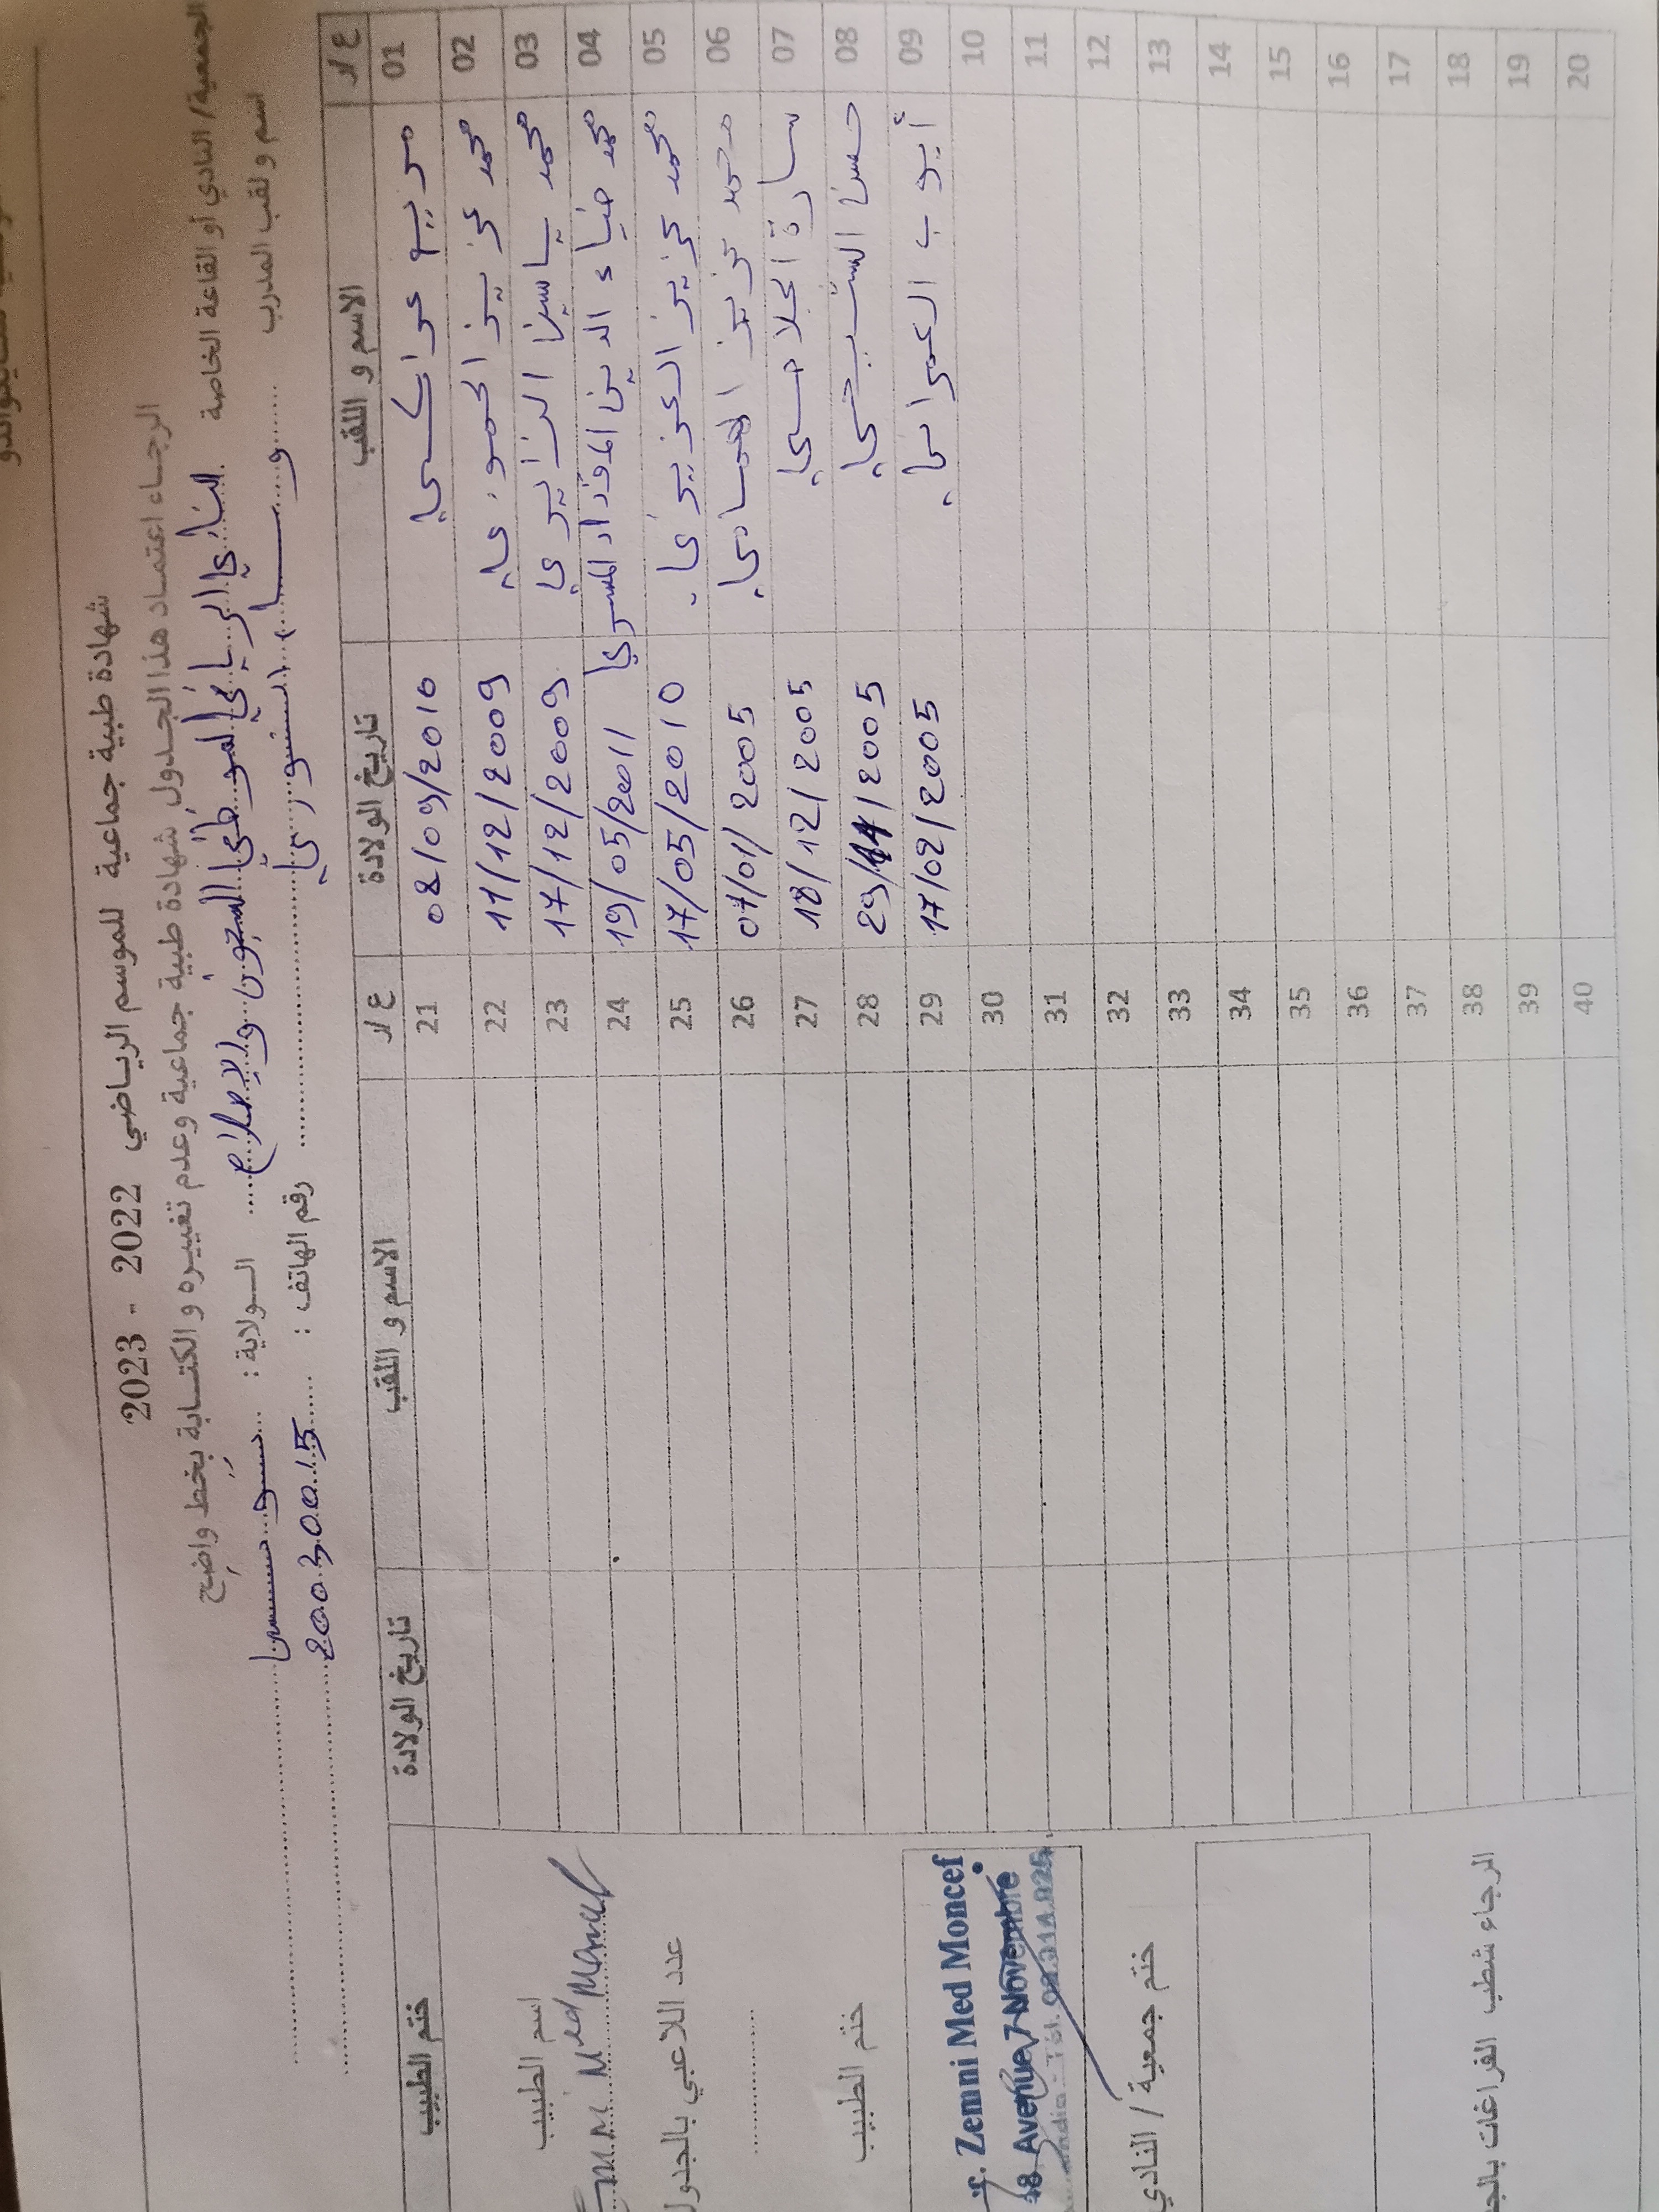 شهادة طبية جماعية للموسم الرياضي 2022 - 2023
الرجاء اعتماد هذا الجدول شهادة طبية جماعية وعدم تغييره و الكتابة بخط واضح
الجمعية/ النادي أو القاعة الخاصة النادي الرياضي الوطني للسجون والإصلاح الولاية : سوسة
اسم و لقب المدرب رقم الهاتف : 20030015
ع / ر الاسم و اللقب تاريخ الولادة ع / ر الاسم و اللقب تاريخ الولادة ختم الطبيب
01 مريم عواكي 08/09/2010 21
02 محمد عزيز 11/12/2009 22
03 محمد ياسين الزايري 17/12/2009 23
04 محمد ضياء الدين المقداد المسري 19/05/2011 24
05 محمد عزيز العزيزي 17/05/2010 25
06 محمد عزيز الهمامي 07/01/2005 26
07 سارة الجلاصي 18/12/2005 27
08 حسن الشيخي 29/11/2005 28
09 أيوب العمراني 17/02/2005 29
10 30
11 31
12 32
13 33
14 34
15 35
16 36
17 37
18 38
19 39
20 40
اسم الطبيب
عدد اللاعبي بالجدول
ختم الطبيب
Zemni Med Moncef
48 Avenue 7 Novembre
ختم جمعية / النادي
الرجاء شطب الفراغات